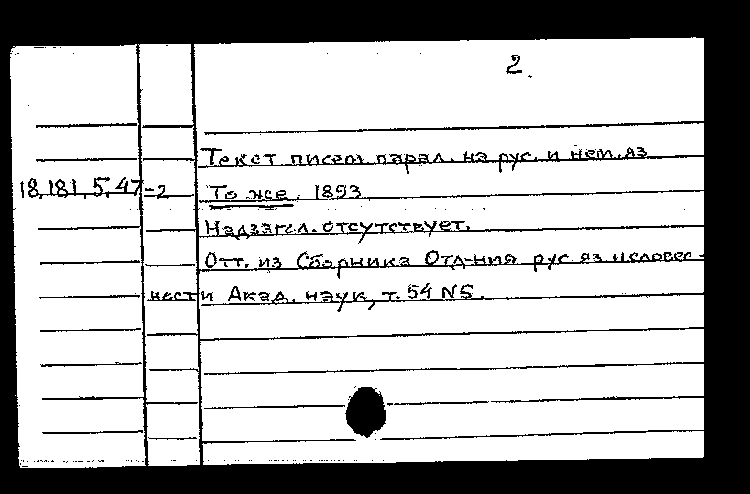 2.
Текст писем парал. на рус. и нем. яз
18.181.5.47-2 То же. 1893
Надзагл. отсутствует.
Отт. из Сборника Отд-ния рус яз и словес-
ности Акад. наук, т. 54 N5.